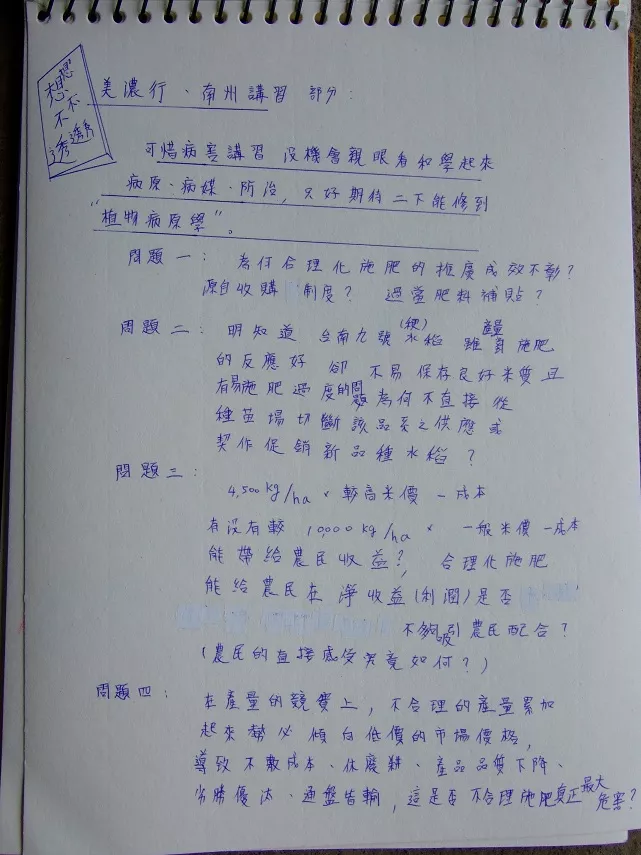 想不透
想不透
美濃行、南州講習 部分:
可惜病害講習 沒機會親眼看和學起來
病原、病媒、防治,只好期待二下能修到
"植物病原學"。
問題一: 為何合理化施肥的推廣成效不彰?
源自收購 制度? 過當肥料補貼?
問題二: 明知道 台南九號(粳)水稻 雖 產量對施肥
的反應好 卻 不易保存良好米質且
有易施肥過度的問題 為何不直接從
種苗場切斷該品系之供應或
契作促銷新品種水稻?
問題三:
4,500 kg/ha × 較高米價 - 成本
有沒有較 10,000 kg/ha × 一般米價 - 成本
能帶給農民收益?, 合理化施肥
能給農民在淨收益(利潤)是否
不夠吸引農民配合?
(農民的直接感受究竟如何?)
問題四: 在產量的競賽上,不合理的產量累加
起來勢必傾向低價的市場價格,
導致不敷成本、休廢耕、產品品質下降、
劣勝優汰、通盤皆輸,這是否不合理施肥真正最大危害?